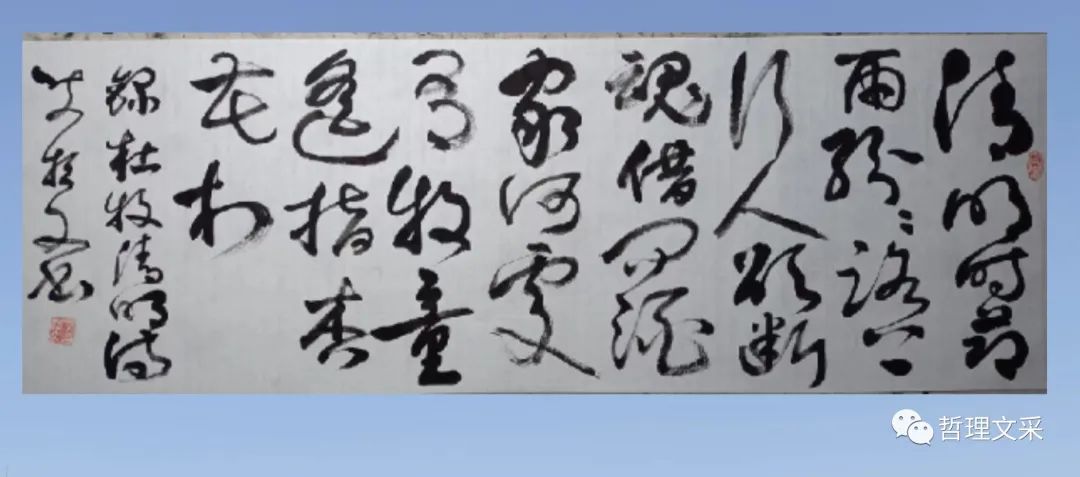 清明时节
雨纷纷路上
行人欲断
魂借问酒
家何處
有牧童
遥指杏
花村
錄杜牧清明诗
文书
哲理文采